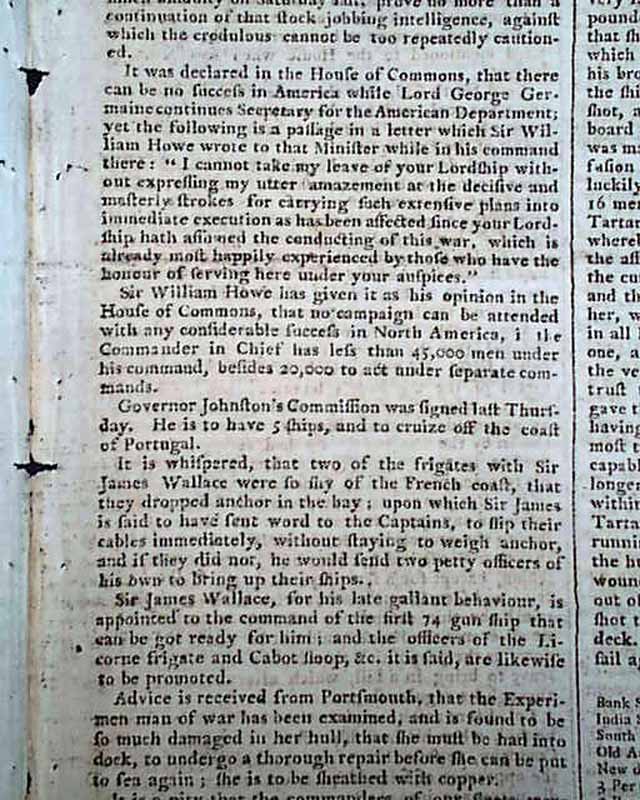 continuation of that ſtock jobbing intelligence, againſt
which the credulous cannot be too repeatedly caution-
ed.
It was declared in the Houſe of Commons, that there
can be no ſucceſs in America while Lord George Ger-
maine continues Secretary for the American Department;
yet the following is a paſſage in a letter which Sir Wil-
liam Howe wrote to that Miniſter while in his command
there: " I cannot take my leave of your Lordſhip with-
out expreſſing my utter amazement at the deciſive and
maſterly ſtrokes for carrying ſuch extenſive plans into
immediate execution as has been affected ſince your Lord-
ſhip hath aſſumed the conducting of this war, which is
already moſt happily experienced by thoſe who have the
honour of ſerving here under your auſpices."
Sir William Howe has given it as his opinion in the
Houſe of Commons, that no campaign can be attended
with any conſiderable ſucceſs in North America, i the
Commander in Chief has leſs than 45,000 men under
his command, beſides 20,000 to act under ſeparate com-
mands.
Governor Johnſton's Commiſſion was ſigned laſt Thurſ-
day. He is to have 5 ſhips, and to cruize off the coaſt
of Portugal.
It is whiſpered, that two of the frigates with Sir
James Wallace were ſo ſhy of the French coaſt, that
they dropped anchor in the bay; upon which Sir James
is ſaid to have ſent word to the Captains, to ſlip their
cables immediately, without ſtaying to weigh anchor,
and if they did not, he would ſend two petty officers of
his own to bring up their ſhips.
Sir James Wallace, for his late gallant behaviour, is
appointed to the command of the firſt 74 gun ſhip that
can be got ready for him; and the officers of the Li-
corne frigate and Cabot ſloop, &c. it is ſaid, are likewiſe
to be promoted.
Advice is received from Portſmouth, that the Experi-
men man of war has been examined, and is found to be
ſo much damaged in her hull, that ſhe muſt be had into
dock, to undergo a thorough repair before ſhe can be put
to ſea again; ſhe is to be ſheathed with copper.
pound
that ſh
which
his bro
the ſhi
ſhot, a
board
was m
faſion
luckily
16 men
Tartar
whereb
the aſſ
the cu
and th
her, w
in all
one, a
the ve
truſt
gave t
having
moſt t
capabl
longer
within
Tarta
runnin
the hu
woun
out of
ſhot t
deck.
ſail a
Bank S
India S
South
Old A
New d
3 Per